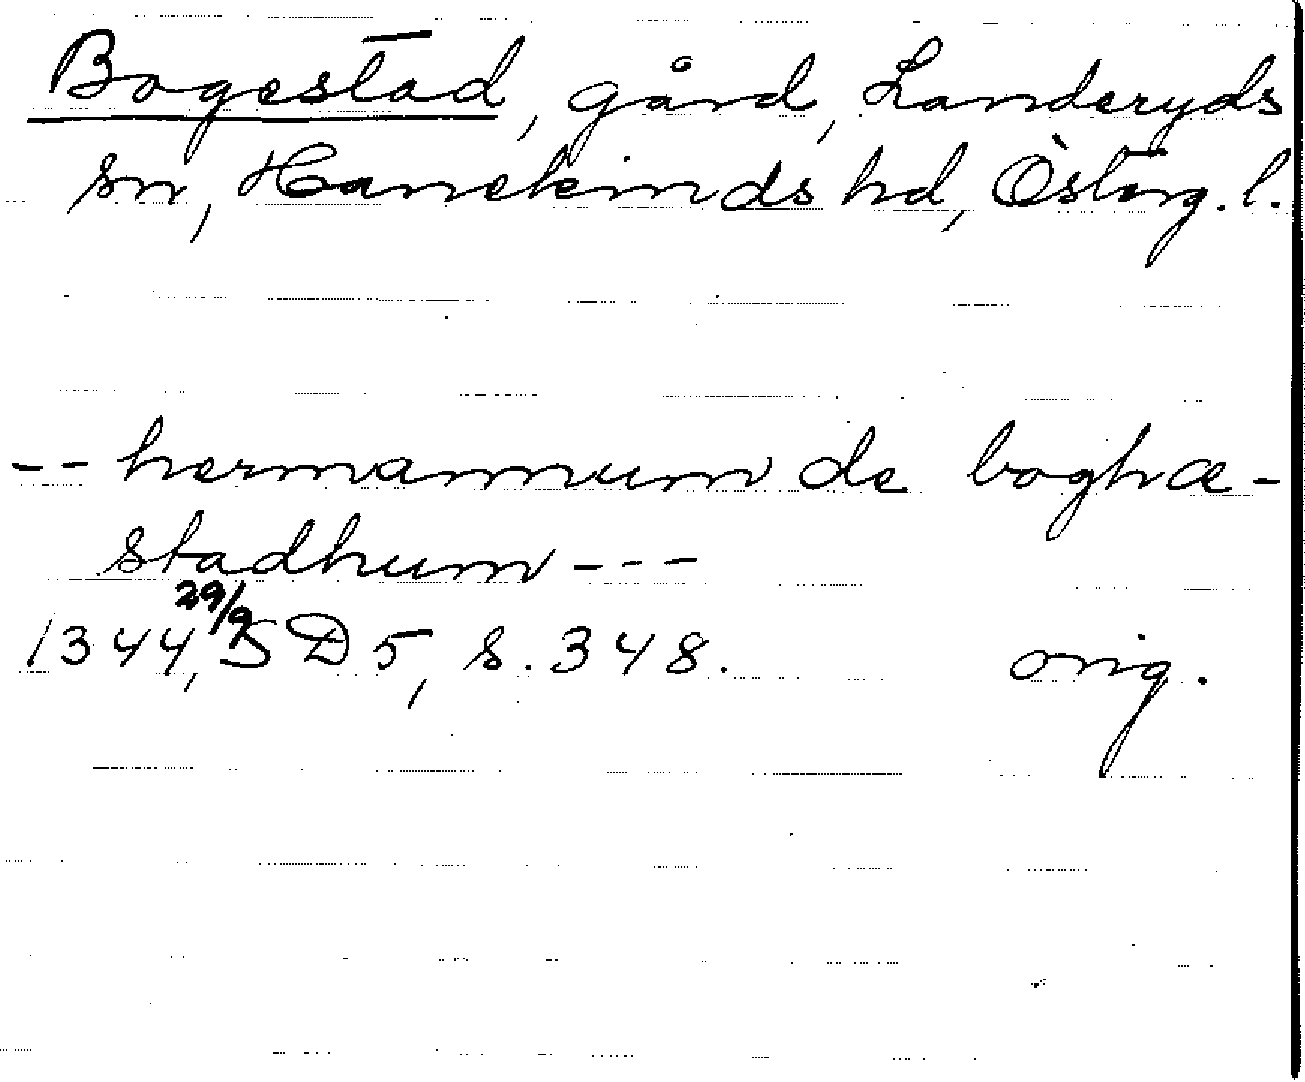 Bogestad, gård, Landeryds
sn, Hanekinds hd, Österg. l.
-- hermannum de boghæ-
stadhum ---
1344 29/9, SD 5, s. 348. orig.